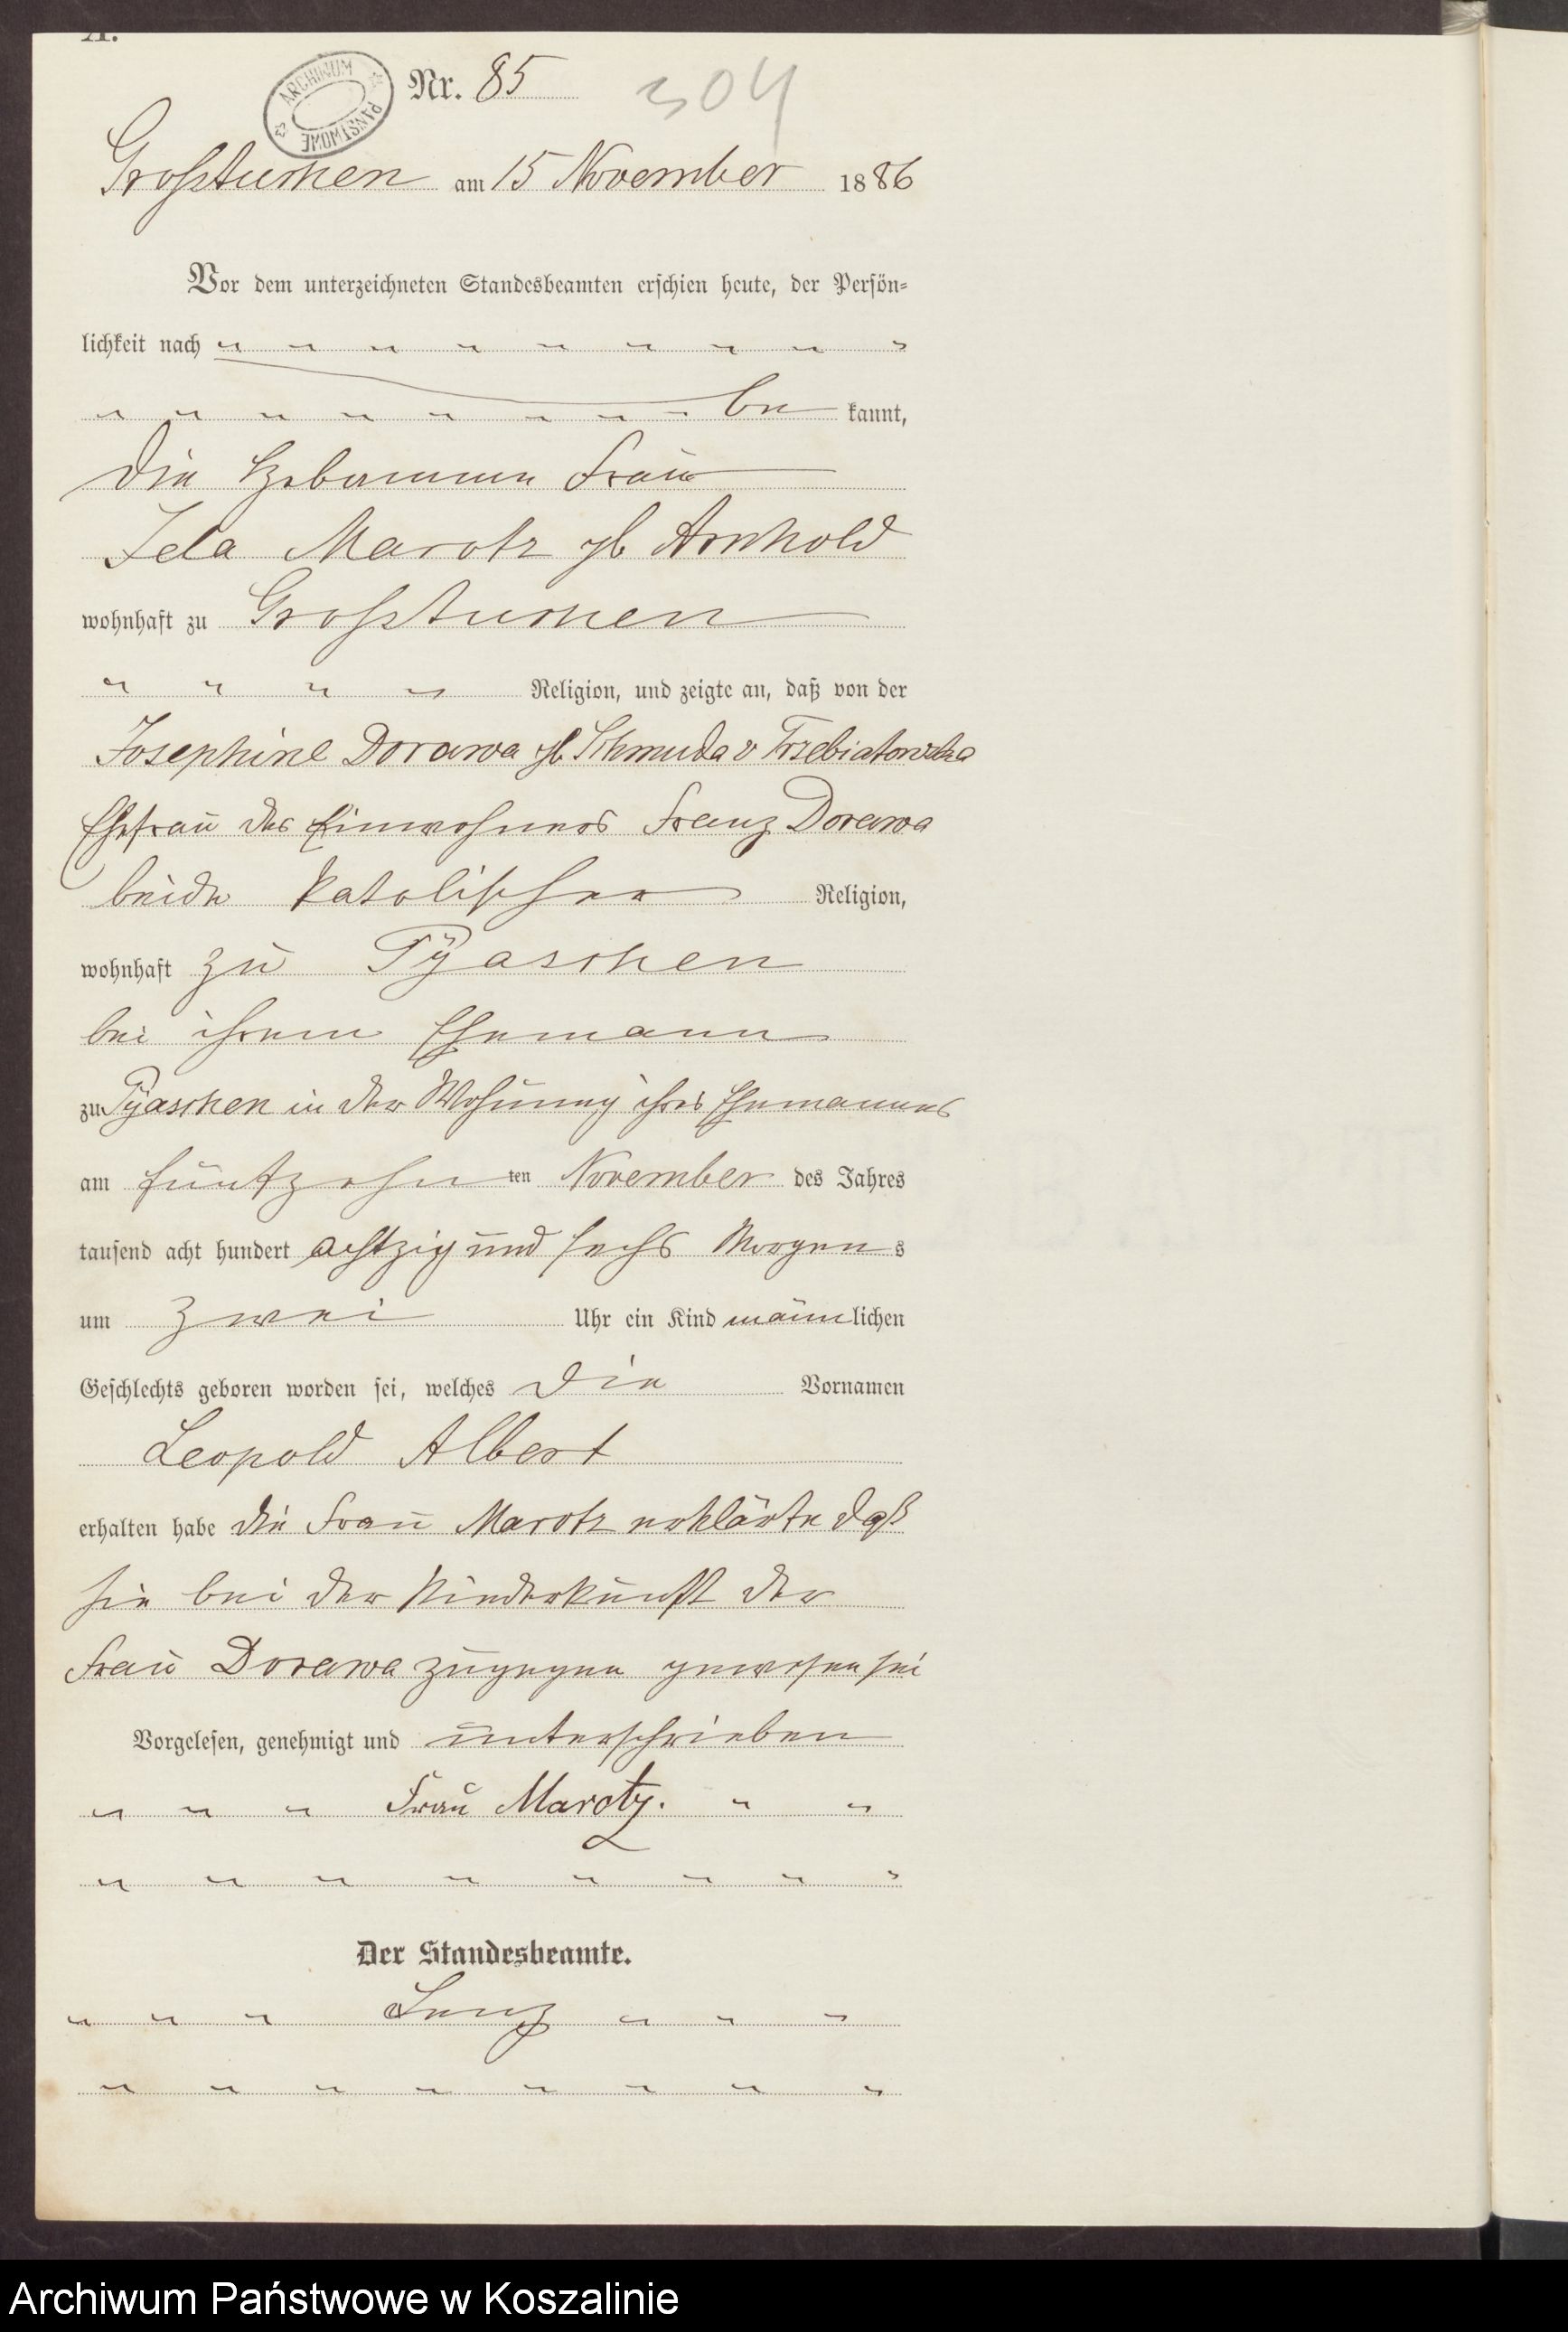 A.
ARCHIWUM PAŃSTWOWE
Nr. 85
304
Großtuchen am 15 November 1886
Vor dem unterzeichneten Standesbeamten erschien heute, der Persön-
lichkeit nach
be kannt,
die Hebamme Frau
Ida Marotz gb Arnhold
wohnhaft zu Großtuchen
Religion, und zeigte an, daß von der
Josephine Dorawa gb Schmuda v Trzebiatowska
Ehefrau des Einwohners Franz Dorawa
beide katolischer Religion,
wohnhaft zu Pÿaschen
bei ihrem Ehemann
zu Pÿaschen in der Wohnung ihres Ehemannes
am fünfzehn ten November des Jahres
tausend acht hundert achtzig und sechs Morgens
um zwei Uhr ein Kind männlichen
Geschlechts geboren worden sei, welches die Vornamen
Leopold Albert
erhalten habe die Frau Marotz erklärte daß
sie bei der Niederkunft der
Frau Dorawa zugegen gewesen sei
Vorgelesen, genehmigt und unterschrieben
Frau Marotz.
Der Standesbeamte.
Lenz
Archiwum Państwowe w Koszalinie